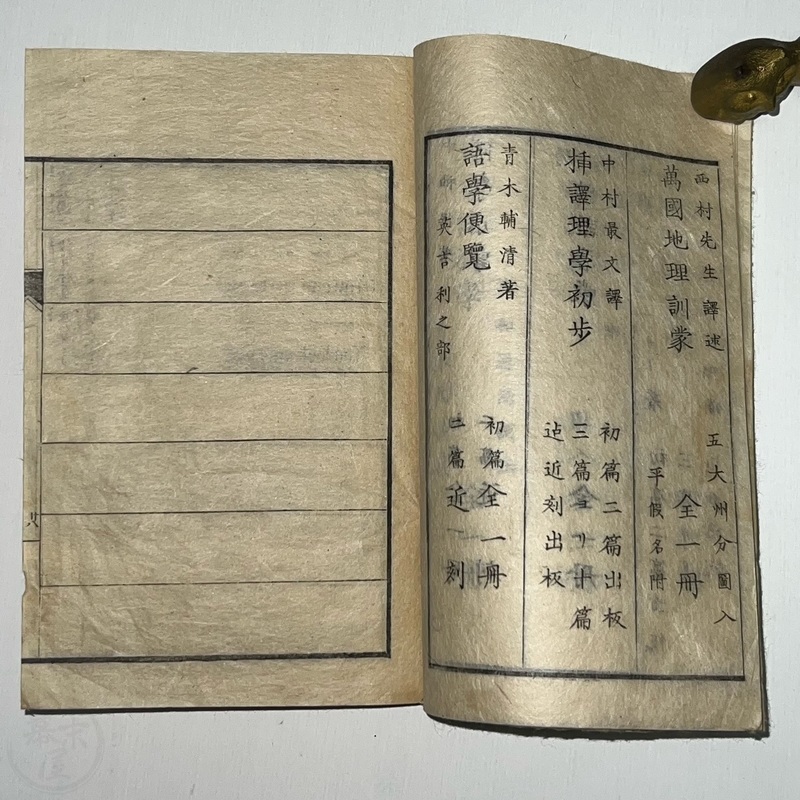 西村先生譯述
萬國地理訓蒙
五大州分圖入
全一冊
平假名附
中村最文譯
挿譯理學初歩
初篇二篇出板
三篇ヨリ十篇
迠近刻出板
青木輔清著
語學便覽
英吉利之部
初篇全一冊
二篇近刻